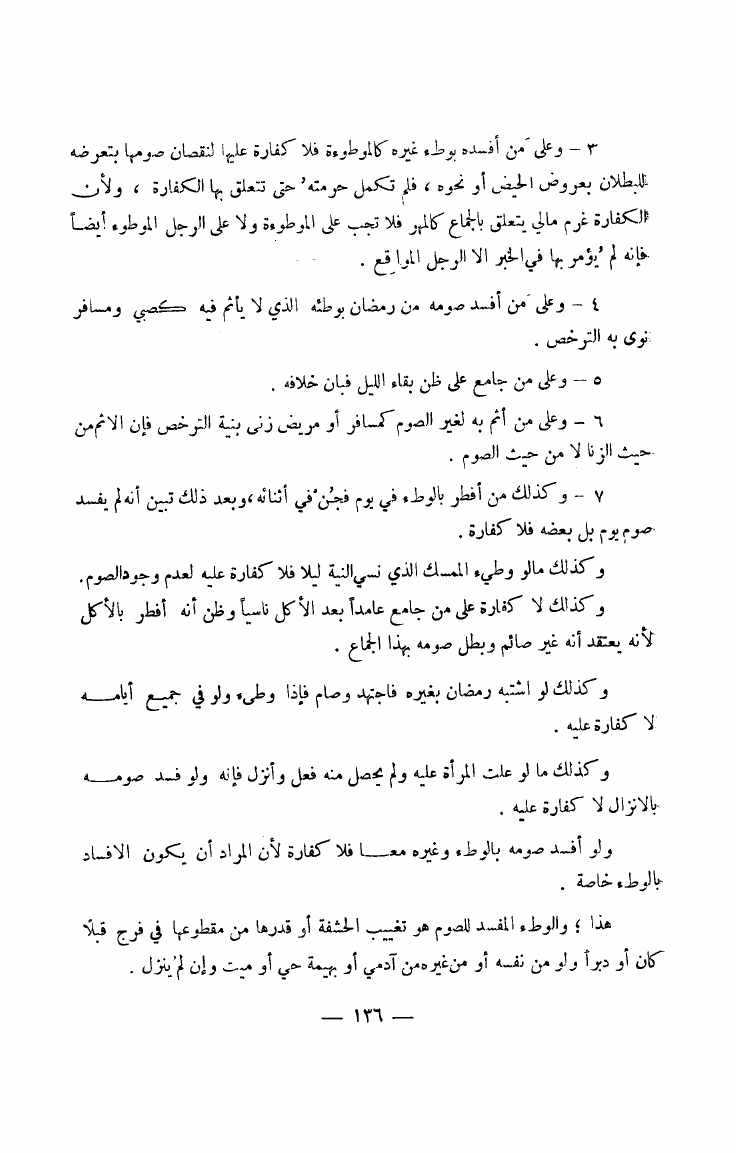 ٣ – وعلى مَن أفسده بوطء غيره كالموطوءة فلا كفارة عليها لنقصان صومها بتعرضه
للبطلان بعروض الحيض أو نحوه ، فلم تكمل حرمته حتى تتعلق بها الكفارة ، ولأن
الكفارة غرم مالي يتعلق بالجماع كالمهر فلا تجب على الموطوءة ولا على الرجل الموطوء أيضاً
فإنه لم يُؤمر بها في الخبر الا الرجل المواقِع .
٤ – وعلى مَن أفسد صومه من رمضان بوطئه الذي لا يأثم فيه كصبي ومسافر
نوى به الترخص .
٥ – وعلى من جامع على ظن بقاء الليل فبان خلافه .
٦ – وعلى من أثم به لغير الصوم كمسافر أو مريض زنى بنية الترخص فإن الاثم من
حيث الزنا لا من حيث الصوم .
٧ – وكذلك من أفطر بالوطء في يوم فجُنّ في أثنائه، وبعد ذلك تبين أنه لم يفسد
صوم يوم بل بعضه فلا كفارة .
وكذلك مالو وطيء الممسك الذي نسي النية ليلا فلا كفارة عليه لعدم وجود الصوم.
وكذلك لا كفارة على من جامع عامداً بعد الأكل ناسياً وظن أنه أفطر بالأكل
لأنه يعتقد أنه غير صائم وبطل صومه بهذا الجماع .
وكذلك لو اشتبه رمضان بغيره فاجتهد وصام فإذا وطىء ولو في جميع أيامـــه
لا كفارة عليه .
وكذلك ما لو علت المرأة عليه ولم يحصل منه فعل وأنزل فإنه ولو فسد صومـــه
بالانزال لا كفارة عليه .
ولو أفسد صومه بالوطء وغيره معـــا فلا كفارة لأن المراد أن يكون الافساد
بالوطء خاصة .
هذا ؛ والوطء المفسد للصوم هو تغييب الحشفة أو قدرها من مقطوعها في فرج قبلًا
كان أو دبراً ولو من نفسه أو من غيره من آدمي أو بهيمة حي أو ميت وإن لم يُنزل .
— ١٣٦ —